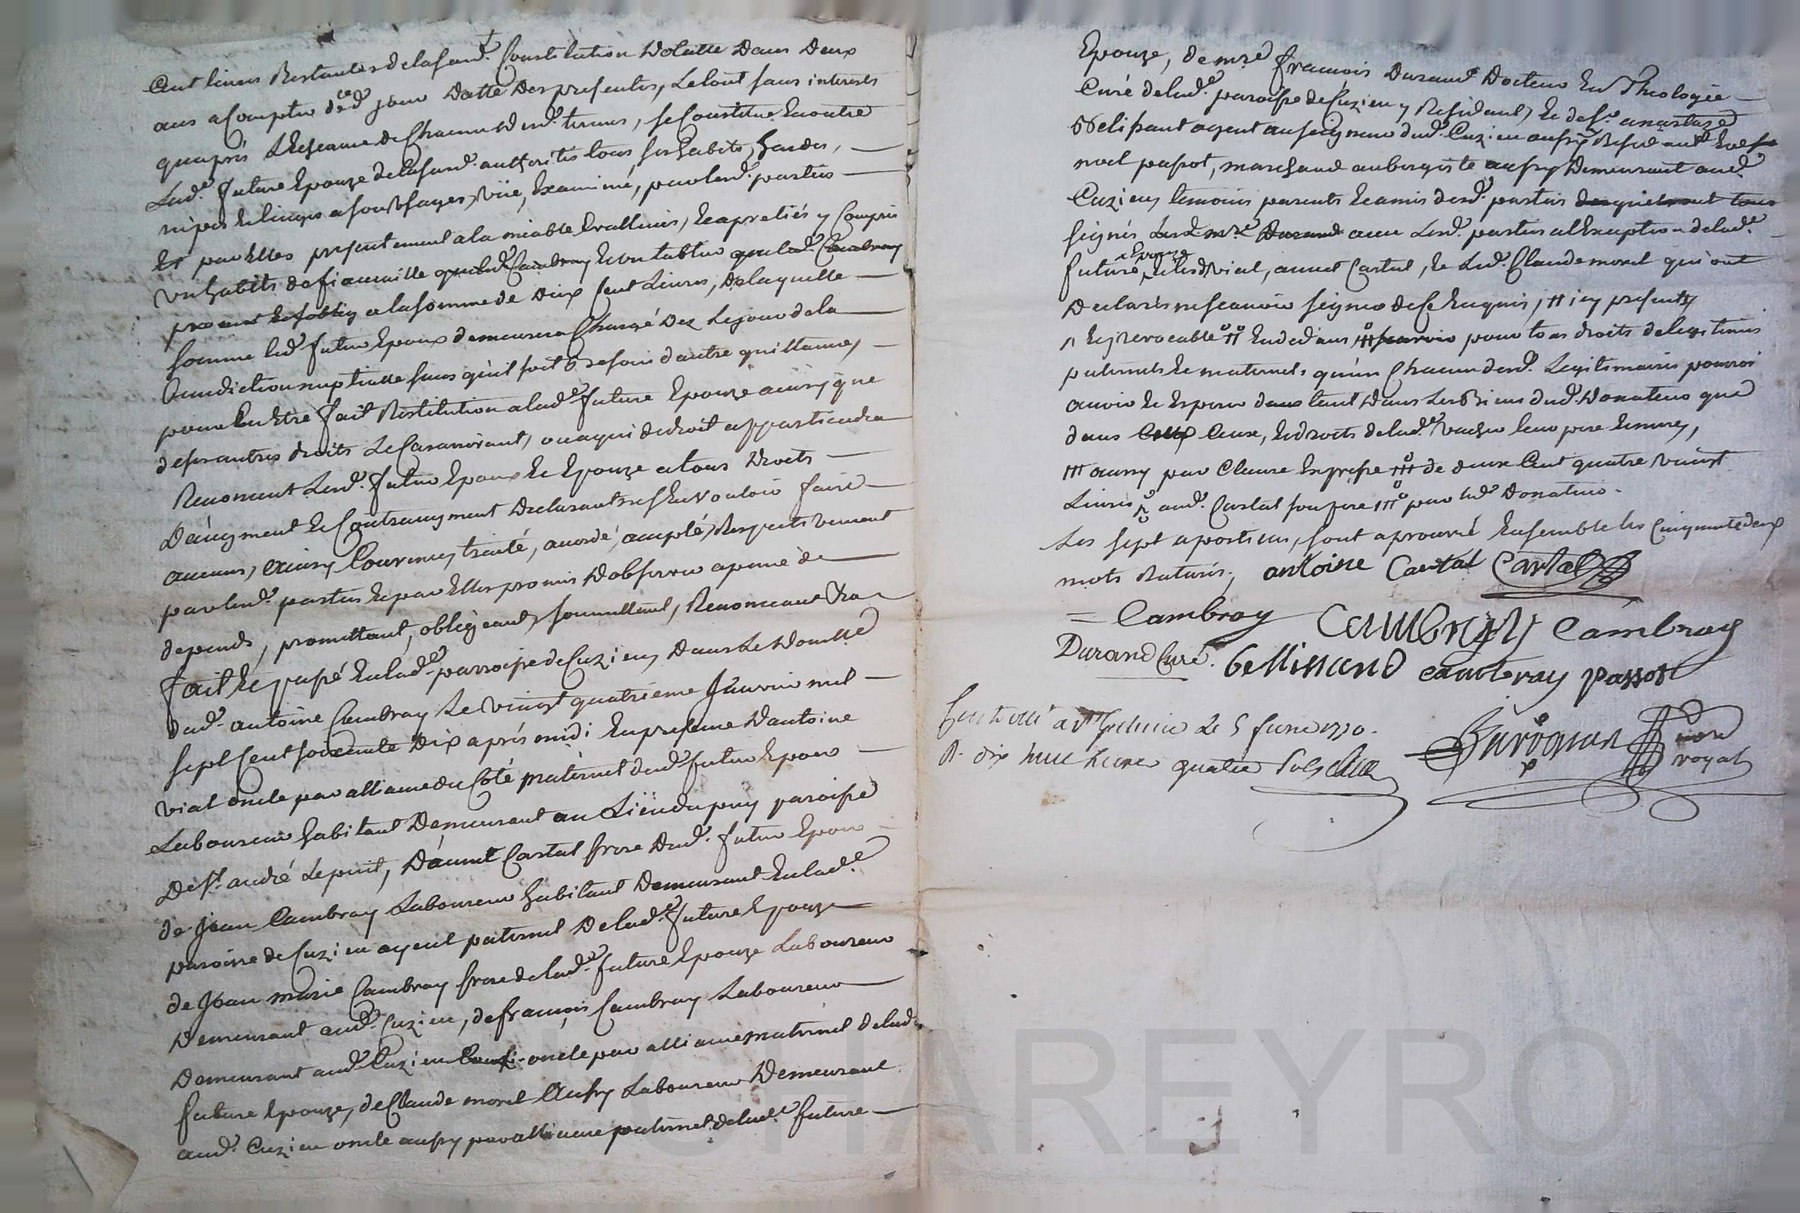 Cent livres Restantes de la susd.e Constitution dotalle dans deux
ans a Compter de ced. jour datte des presentes, Le tout sans interests
qu'aprés L'Echeance de Chacun desd. termes, se Constitue En outre
Lad.e future Epouze de la susd. authorité tous ses habits, hardes,
nipes et linges a son Usage, vüe, Examiné, par lesd. parties
Et par Elles presentement a la miable Evallués, et apretiés y Compris
un habits de fiancaille que led. Cambray et un tablier que lad. Cambray
promet et s'oblig a la somme de Dix Cent Livres, de laquelle
somme led. futur Epoux demeurera Chargé dez Le jour de la
Benediction nuptialle sans qu'il soit besoin d'autre quittance,
pour En Etre fait Restitution a lad.e future Epouze ainsy que
de ses autres droits Le Cas arrivant, ou a qui de droit appartiendra
Renoncent Lesd. futur Epoux et Epouze a tous Droits
D'augment et Contraugment declarants n'En Vouloir faire
aucuns, Ainsy Convenu, traité, acordé, accepté, Respectivement
par lesd. parties et par Elles promis d'observer a peine de
depends, promettant, obligeant, soumettent, Renonceant &a
fait Et passé En lad.e parroisse de Cuzieu, Dans Le Domille
dud. antoine Cambray Le vingt quatrieme Janvier mil
sept Cent soixante dix aprés midi En presence D'antoine
vial oncle par alliance du Coté maternel dud. futur Epoux
Laboureur habitant Demeurant au Lieu du puy paroisse
De St. andré Le puit, D'annet Cartal frere Dud. futur Epoux
de Jean Cambray Laboureur habitant Demeurant En lad.e
paroisse de Cuzieu ayeul paternel De lad.e future Epouze
de Jean marie Cambray frere de lad.e future Epouze Laboureur
Demeurant aud. Cuzieu, de francois Cambray Laboureur
Demeurant aud. Cuzieu oncle par alliance maternel de lad.
future Epouze, de Claude morel Aussy Laboureur Demeurant
aud. Cuzieu oncle aussy par alliance paternel de lad.e future
Epouze, de m.re francois Durand Docteur En Theologie
Curé de lad.e paroisse de Cuzieu y Residant, et de s.r anastaze
Belissant agent au seigneur dud. Cuzieu aussy Residant, Et de s.r
noel passot, marchand aubergiste aussy Demeurant aud.
Cuzieu, temoins parents et amis desd. parties desquiels ont tous
signés Led. m.re Durand avec Lesd. parties a l'Exception de lad.e
future Epouze, Lesd. vial, annet Cartal, Et Led. Claude morel qui ont
Declarés ne scavoir signer de Ce Enquis, # icy presents
^ Et irrevocable # Endedans # scavoir pour tous droits de legitimes
paternels et maternels qu'un Chacun desd. Legitimaires pouroi
avoir Et Esperer dans tant dans Les Biens dud. Donateur que
dans Ceux, Et droits de lad.e vacher leur pere Et mere,
# aussy par Clause Expresse # de deux Cent quatre vingt
Livres aud. Cartal son pere # par led. Donateur.
Les sept apostiles, sont aprouvé Ensemble les Cinquante deux
mots Raturés, antoine Cartal Cartal
Cambray Cambray Cambray
Durand Curé. Bellissand Cambray Passot
Controllé a St. Galmier Le 5 fevrier 1770.
R. dix huit Livres quatre sols
not.re
royal